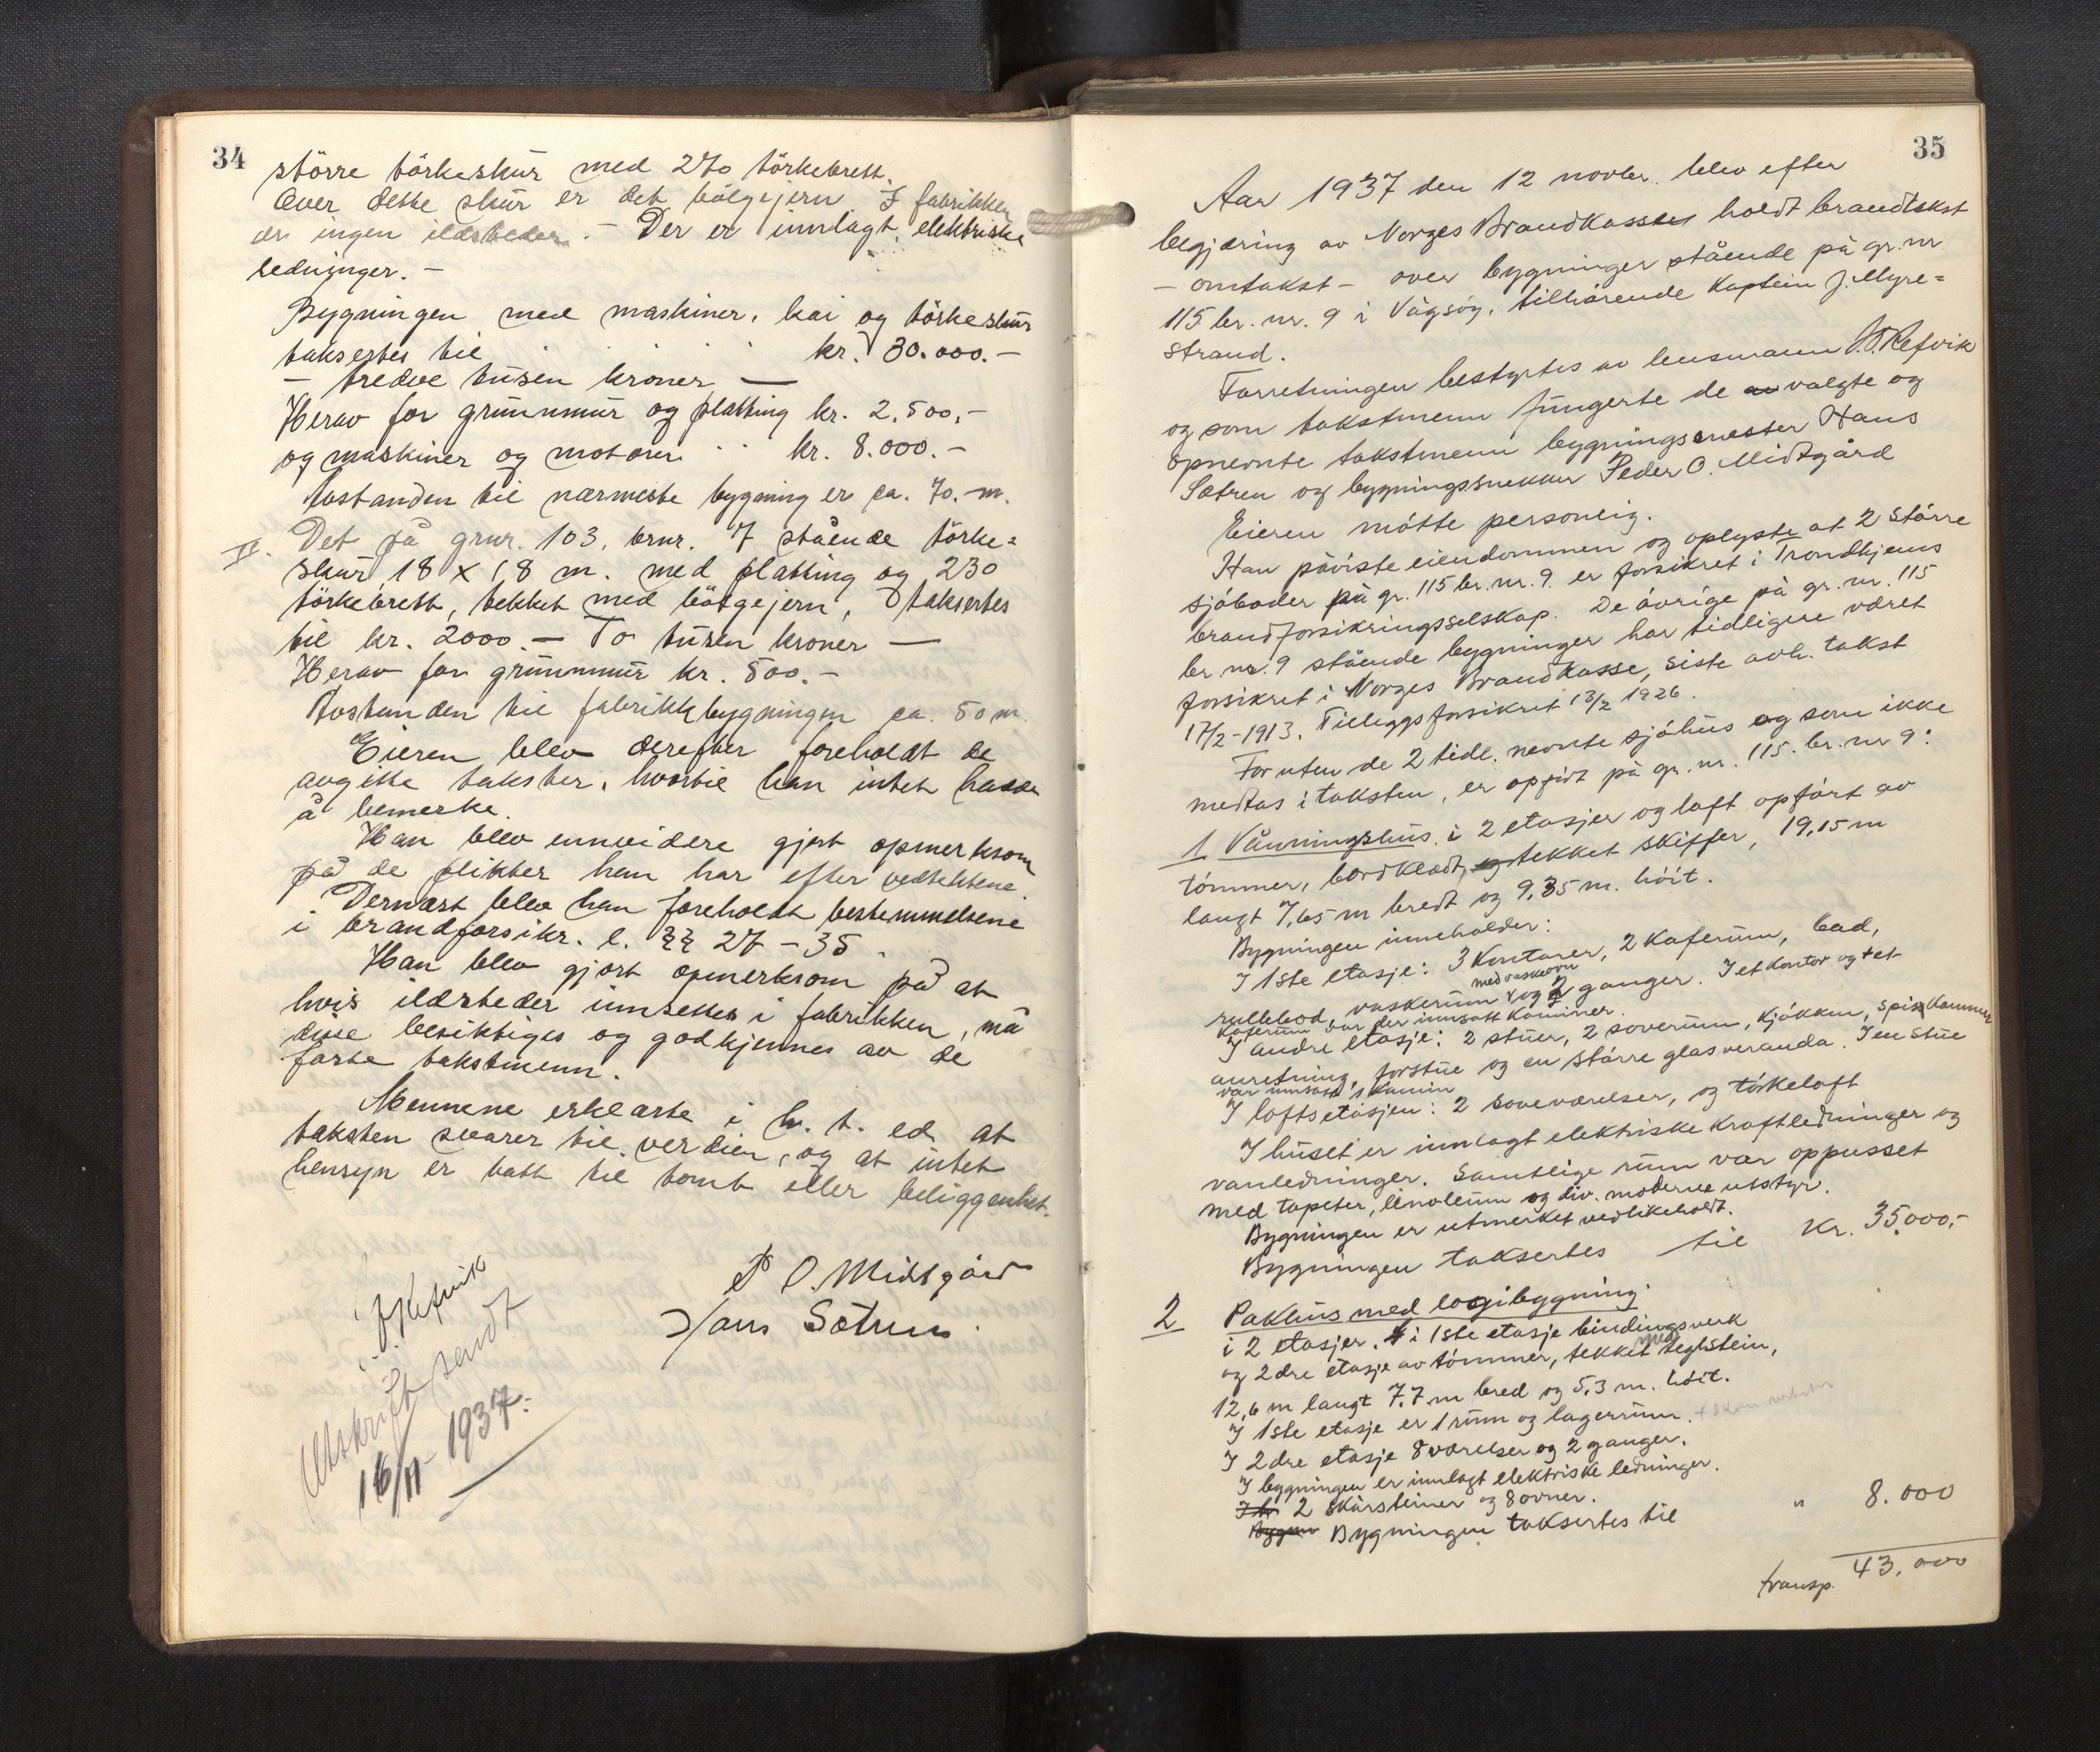 34
større tørkeskur med 270 tørkebrett.
Over dette skur er det bølgejern I fabrikken
er ingen ildsteder. – Der er innlagt elektriske
ledninger. –
Bygningen med maskiner, kai og tørkeskur
taksertes til kr. 30.000.–
— tredve tusen kroner —
Herav for grunnmur og platting kr. 2.500.–
og maskiner og motorer kr. 8.000.–
Avstanden til nærmeste bygning er ca. 70. m.
II. Det på grnr. 103, brnr. 7 stående tørke=
skur 18 x 18 m. med platting og 230
tørkebrett, tekket med bølgejern, taksertes
til kr. 2000.– To tusen kroner —
Herav for grunnmur kr. 500.–
Avstanden til fabrikkbygningen ca. 50 m.
Eieren blev derefter foreholdt de
avgitte takster, hvortil han intet hadde
å bemerke.
Han blev ennvidere gjort opmerksom
på de plikter han har efter vedtektene.
Dernæst blev han foreholdt bestemmelsene
i brandforsikr. l. §§ 27 – 35.
Han blev gjort opmerksom på at
hvis ildsteder innsettes i fabrikken, må
disse besiktiges og godkjennes av de
faste takstmenn.
Mennene erklærte i h. t. ed at
taksten svarer til verdien, og at intet
hensyn er tatt til tomt eller beliggenhet.
P O. Midtgård
Hans Sætren.
J. Refvik
Utskrift sendt
16/11 – 1937.
35
Aar 1937 den 12 novbr. blev efter
begjæring av Norges Brandkasse holdt brandtakst
– omtakst – over bygninger stående på gr. nr
115 br. nr. 9 i Vågsøy, tilhørende Kaptein J. Myre=
strand.
Forretningen bestyrtes av lensmann J. Refvik
og som takstmenn fungerte de av valgte og
opnevnte takstmenn bygningsmester Hans
Sætren og bygningssnekker Peder O. Midtgård
Eieren møtte personlig.
Han påviste eiendommen og oplyste at 2 større
sjøboder på gr. 115 br. nr. 9. er forsikret i Trondhjems
brandforsikringsselskap. De øvrige på gr. nr. 115
br. nr. 9 stående bygninger har tidligere været
forsikret i Norges Brandkasse, siste avh. takst
17/2 - 1913. Tilleggsforsikret 13/2 1926.
Foruten de 2 tidl. nevnte sjøhus og som ikke
medtas i taksten, er opført på gr. nr. 115. br. nr 9:
1 Våningshus i 2 etasjer og loft opført av
tømmer, bordklædt, og tekket skiffer, 19,15 m
langt 7,65 m bredt og 9,35 m. høit.
Bygningen inneholder:
I 1ste etasje: 3 Kontorer, 2 Kaferum, bad,
med vaskeovn
rullebod, vaskerum og 2 ganger. I et kontor og 1 et
kaferum var der innsatt kaminer.
I andre etasje: 2 stuer, 2 soverum, kjøkken, spiskammer
anretning, forstue og en større glasveranda. I en stue
var innsatt 1 kamin
I loftsetasjen: 2 soveværelser, og tørkeloft
I huset er innlagt elektriske kraftledninger og
vanledninger. Samtlige rum var oppusset
med tapeter, linoleum og div. moderne utstyr.
Bygningen er utmerket vedlikeholdt.
Bygningen taksertes til Kr. 35.000,-
2 Pakhus med logibygning
i 2 etasjer. i 1ste etasje bindingsverk
og 2dre etasje av tømmer, tekket med teglstein,
12,6 m langt 7,7 m bred og 5,3 m. høit.
I 1ste etasje er 1 rum og lagerrum.
I 2dre etasje 8 værelser og 2 ganger.
I bygningen er innlagt elektriske ledninger.
2 skårsteiner og 8 ovner.
Bygnin Bygningen taksertes til " 8.000
transp. 43.000